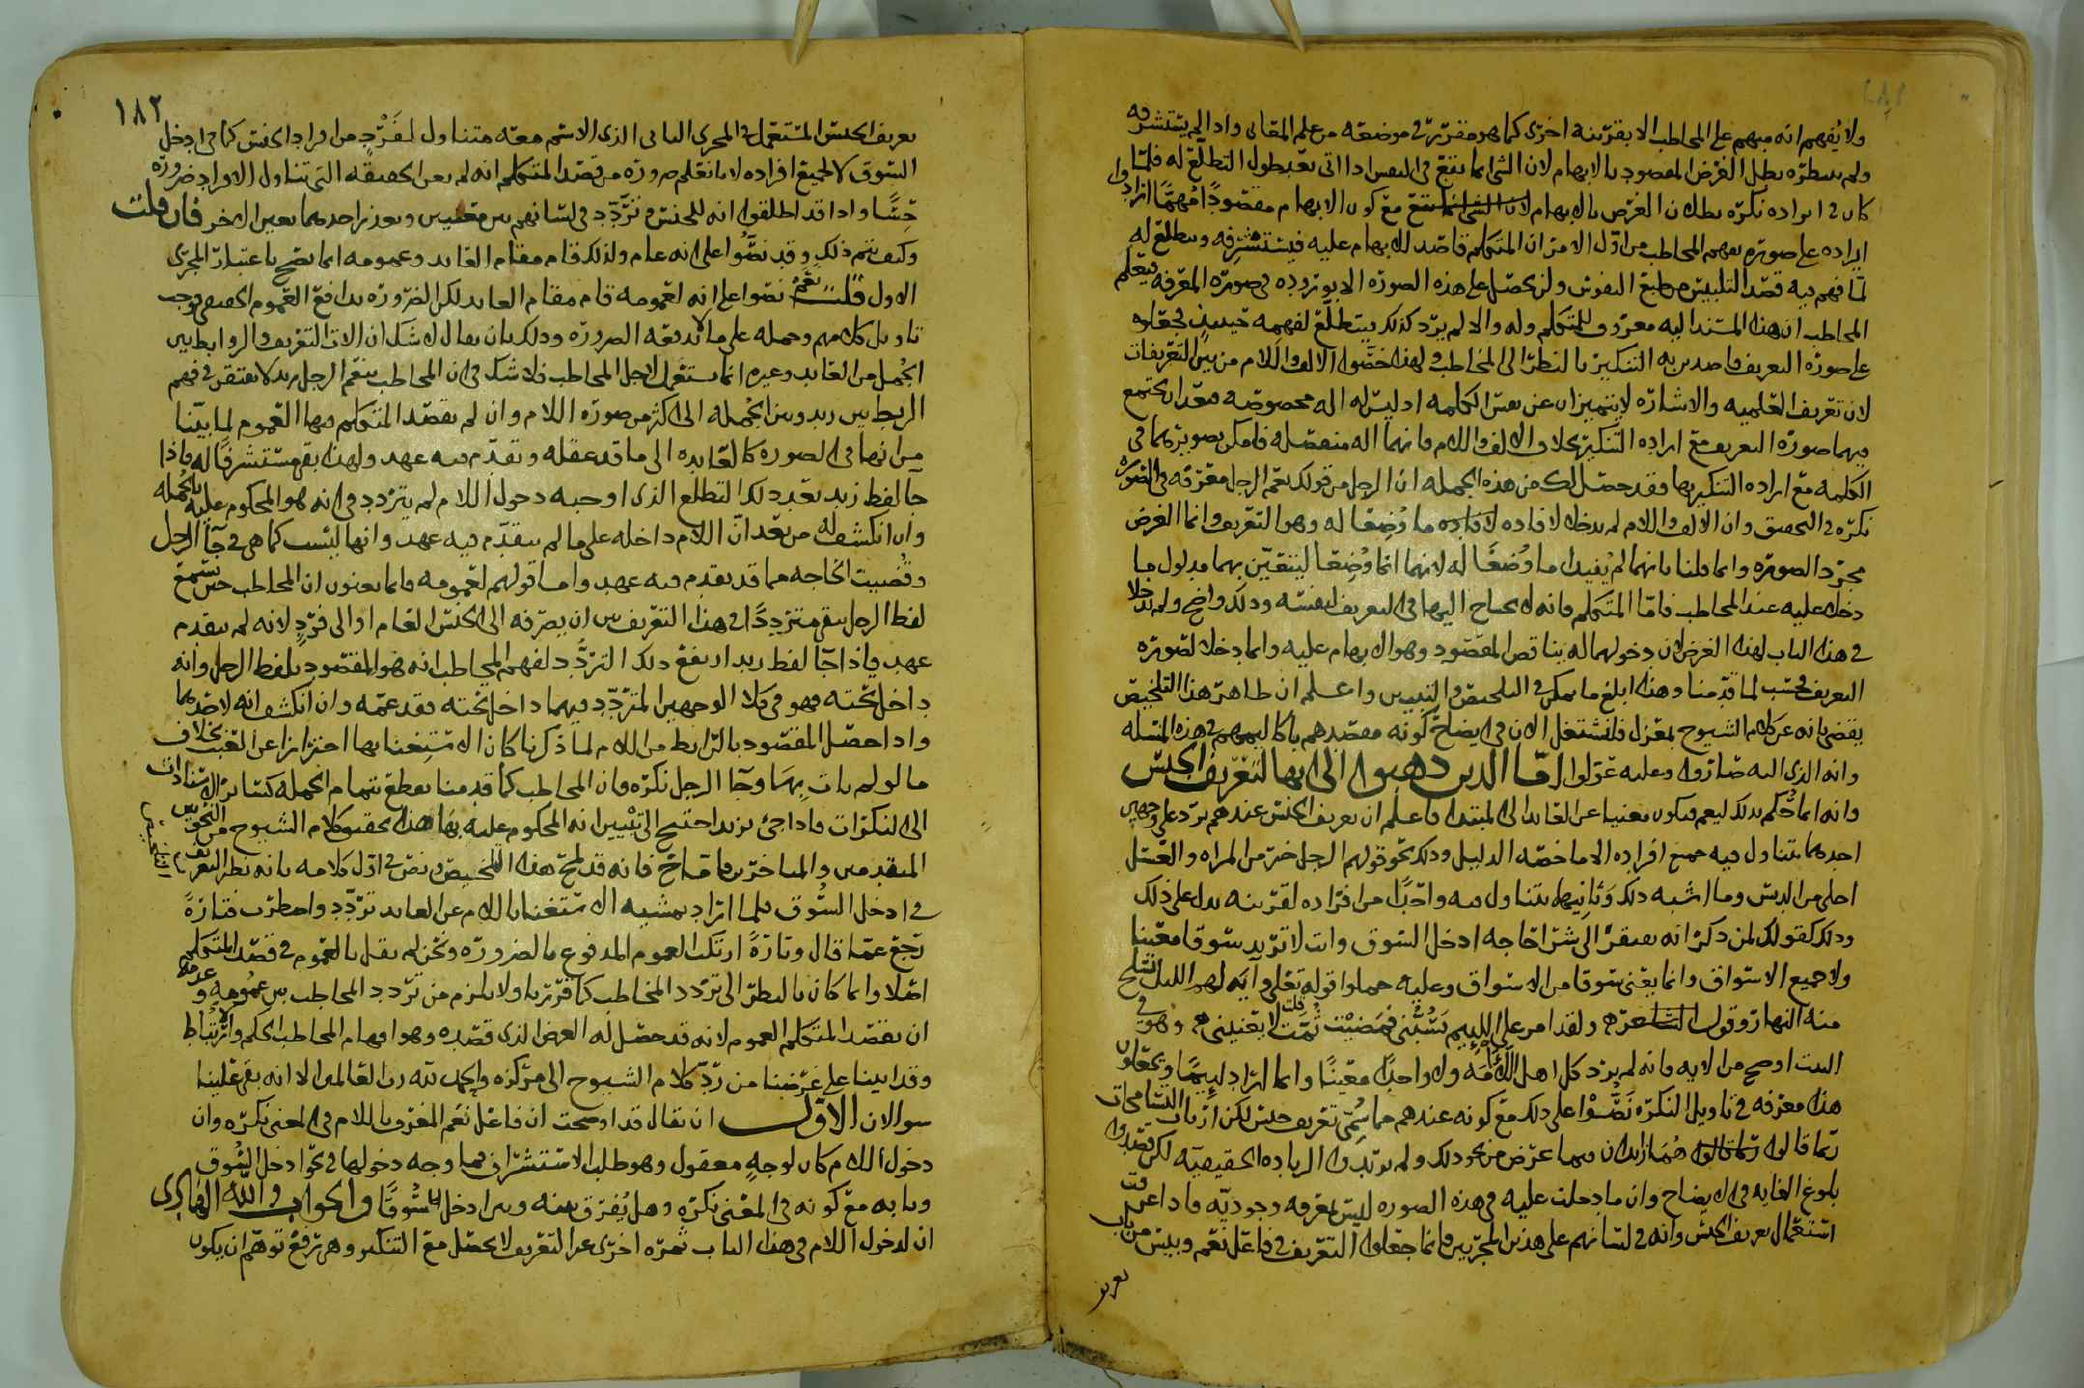 ولا يُفهم انه مبهم على المخاطب الا بقرينه اخرى كما هو مقرّر فى موضعه من علم المعانى واذا لم يستشرفه
ولم ينتظره بطل الغرض المقصود بالابهام لان الشى انما يقع فى النفس اذا اتى بعد طول التطلّع له فلمّا
كان فى ايراده نكره بطلان الغرض بالابهام مع كون الابهام مقصودًا مهمّا ارادوا
ايراده على صورةٍ يفهم المخاطب من اوّل الامر ان المتكلم قاصد للابهام عليه فيستشرفه ويتطلع له
لما فهم فيه قصد التلبيس من طبع النفوس ولن يحصل على هذه الصوره الا بوروده فى صورة المعرفه فيعلم
المخاطب ان هذا المسند اليه معروف للمتكلم وله والا لم يرد كذلك فيتطلّع لفهمه حينئذٍ فجعلوه
على صورة التعريف قاصدين به التنكير بالنظر الى المخاطب ولهذا خصّوا الالف واللام من بين التعريفات
لان تعريف العلميه والاشاره لا يتميزان عن نفس الكلمه اذ ليس له اله مخصوصه فتعذر ان يجتمع
فيهما صورة التعريف مع اراده التنكير بخلاف الالف واللام فانهما اله منفصله فامكن تصويرهما فى
الكلمه مع اراده التنكير بها فقد حصل لك من هذه الجمله ان الرجل من قولك نعم الرجل معرفه فى الصوره
نكره فى التحقيق وان الالف واللام لم يدخلا لافاده ما وُضِعَا له وهو التعريف وانما الغرض
مجرّد الصوره وانما قلنا بانهما لم يُفيدا ما وُضعَا له لانهما انما وُضِعَا ليتعيّن بهما مدلول ما
دخلا عليه عند المخاطب فامّا المتكلم فانه لا يحتاج اليها فى التعريف لنفسه وذلك واضح ولم يدخلا
فى هذا الباب لهذا الغرض لان دخولهما له يناقض المقصود وهو الابهام عليه وانما دخلا لصورة
التعريف فحسب لما قدّمنا وهذا ابلغ ما يمكن فى التلخيص والتبيين واعلم ان ظاهر هذا التلخيص
يقضى بانه عن كلام الشيوخ بمعزل فلنشتغل الان فى ايضاح كونه مقصدهم باكاليمهم فى هذه المسله
وانه الذى اليه صاروا وعليه عوّلوا امّا الذين ذهبوا الى انها لتعريف الجنس
وانه انما حُكم بذلك ليعم فيكون مغنيا عن العايد الى المبتدا فاعلم ان تعريف الجنس عندهم يرد على وجهين
احدهما يتناول فيه جميع افراده الا ما خصّه الدليل وذلك نحو قولهم الرجل خير من المراه والعسل
احلى من الدبس وما اشبه ذلك وثانيهما يتناول فيه واحدًا من افراده لقرينه يدل على ذلك
وذلك كقولك لمن ذكر انه يفتقر الى شرا حاجه ادخل السّوق وانت لا تريد سوقا معيّنا
ولا جميع الاسواق وانما يعنى سوقا من الاسواق وعليه حملوا قوله تعلى وآيه لهم الليل نسلخ
منه النهار وقول الشاعر ولقد امر على اللييم يَسُبّنى فمضيْت ثُمّت قلت لا يعنينى وهو فى
البيت اوضح من الايه فانه لم يرد كل اهل اللَّآمَه ولا واحدًا معيّنًا وانما اراد لييمًا ويجعلون
هذا معرفه فى تاويل النكره نَصُّوْا على ذلك مع كونه عندهم مما سُمّى تعريف جنس لكن ارباب
ربما قالوا هُمَا زايدان فيما عرض من نحو ذلك ولم يريدوا الزياده الحقيقيه لكن قصدوا
بلوغ الغايه فى الايضاح وان ما دخلت عليه فى هذه الصوره ليس لمعرفه وجوديّه فاذا عرفت
استعمال تعريف الجنس وانه فى لسانهم على هذين المجريين فانما جعلوا التعريف فى فاعل نعم وبيس من باب
تعريف
١٨٢
تعريف الجنس المستعمل فى المجرى الثانى الذى الاسم معه متناول لفَرْدٍ من افراد الجنس كما فى ادخل
السّوق لا لجميع افراده لانا نعلم ضروره من قصد المتكلم انه لم يعن الحقيقه التى تتناول الافراد ضروره
حِسًّا واذا قد اطلقوا انه للجنس وتردّد فى لسانهم بين معنيين وتعذر احدهما تعين الاخر فان قلت
وكيف يتم ذلك وقد نصُّوا على انه عام ولذلك قام مقام العايد وعمومه انما يصح باعتبار المجرى
الاول قلت نعم نصّوا على انه لعمومه قام مقام العايد لكن الضروره تدافع العموم الحقيقى فوجب
تاويل كلامهم وحمله على ما لا تدفعه الضروره وذلك بان يقال لا شك ان الات التعريف والروابط بين
الجُمل من العايد وغيره انما يستعمل لاجل المخاطب فلا شك فى ان المخاطب بنعم الرجل زيد لا يفتقر فى فهم
الربط بين زيد وبين الجُمله الى اكثر من صوره اللام وان لم يقصد المتكلم فيها العموم لما بيّنا
من انها فى الصوره كالعايده الى ما قد عقله وتقدّم فيه عهد ولهذا بقى مستشرفًا له فاذا
جا لفظ زيد بعد ذلك التطلع الذى اوجبه دخول اللام لم يتردد فى انه هو المحكوم عليه بالجُمله
وان انكشف له من بعد انّ اللام داخله على ما لم يتقدّم فيه عهد وانها ليست كما هى فى جآ الرجل
وقُضيت الحاجه مما قد تقدم فيه عهد واما قولهم لعمومه فانما يعنون ان المخاطب حين يسمع
لفظ الرجل يبقى مترددًا فى هذا التعريف بين ان يصرفه الى الجنس العام او الى فردٍ لانه لم يتقدم
عهد فاذا جآ لفظ زيد ارتفع ذلك التردُّد لفهم المخاطب انه هو المقصود بلفظ الرجل وانه
داخل تحته فهو فى كلا الوجهين المتردّد فيهما داخل تحته فقد عمّه وان انكشف انه لاحدهما
واذا حصل المقصود بالرابط من اللام لما ذكرنا كان الاستغنا بها احترازا عن العبث بخلاف
ما لو لم يات بِهَا وجآ الرجل نكره فان المخاطب كما قدمنا يقطع بتمام الجمله كساير الاسنادات
الى النكرات فاذا جئ بزيد احتيج الى تبْيين انه المحكوم عليه بهَا هذا تحقيق كلام الشيوخ من النحويين
المتقدمين والمتاخرين فانه قد لمح هذا التلخيص ونصّ فى اوّل كلامه بانه نظر التعريف
فى ادخل السُّوق فلما اراد تمشيه الاستغنا باللام عن العايد تردّد واضطرب فتارَةً
رجع عمّا قال وتارَةً ارتكب العموم المدفوع بالضروره ونحن لم نقل بالعموم فى قصد المتكلم
اصلا وانما كان بالنظر الى تردد المخاطب كما قررنا ولا يلزم من تردد المخاطب بين عمومه وعدمه
ان يقصد المتكلم العموم لانه قد حصّل له الغرض الذى قصده وهو افهام المخاطب الحكم وارتباط
وقد اتينا على غرضنا من ردّ كلام الشيوخ الى مركزه والحمد لله رب العالمين الا انه بقى علينا
سوالان الاوّل ان يقال قد اوضحت ان فاعل نعم المعرف باللام فى المعنى نكره وان
دخول اللام كان لوجهٍ معقول وهو طلب الاستشراف فما وجه دخولها فى نحو ادخل السُّوق
وبابه مع كونه فى المعنى نكره وهل يُفرق بينه وبين ادخل سُوقًا والجواب والله الهادى
ان لدخول اللام فى هذا الباب ثمره اخرى غير التعريف لا يحصّل مع التنكير وهى ترفع توهّم ان يكون